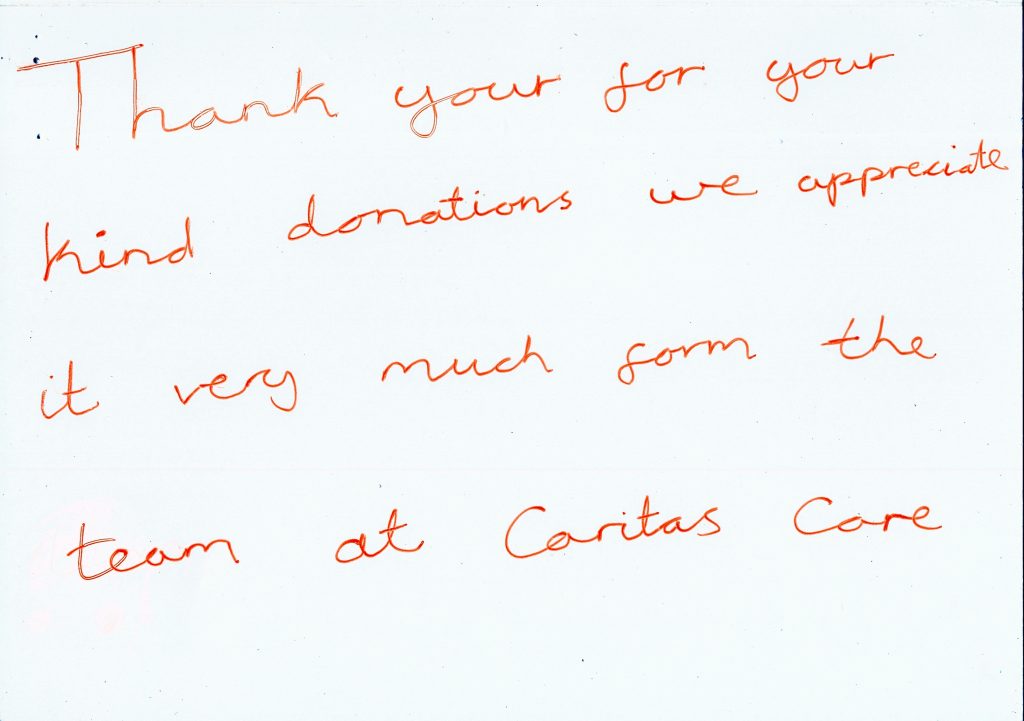 Thank your for your
kind donations we appreciate
it very much form the
team at Caritas Care